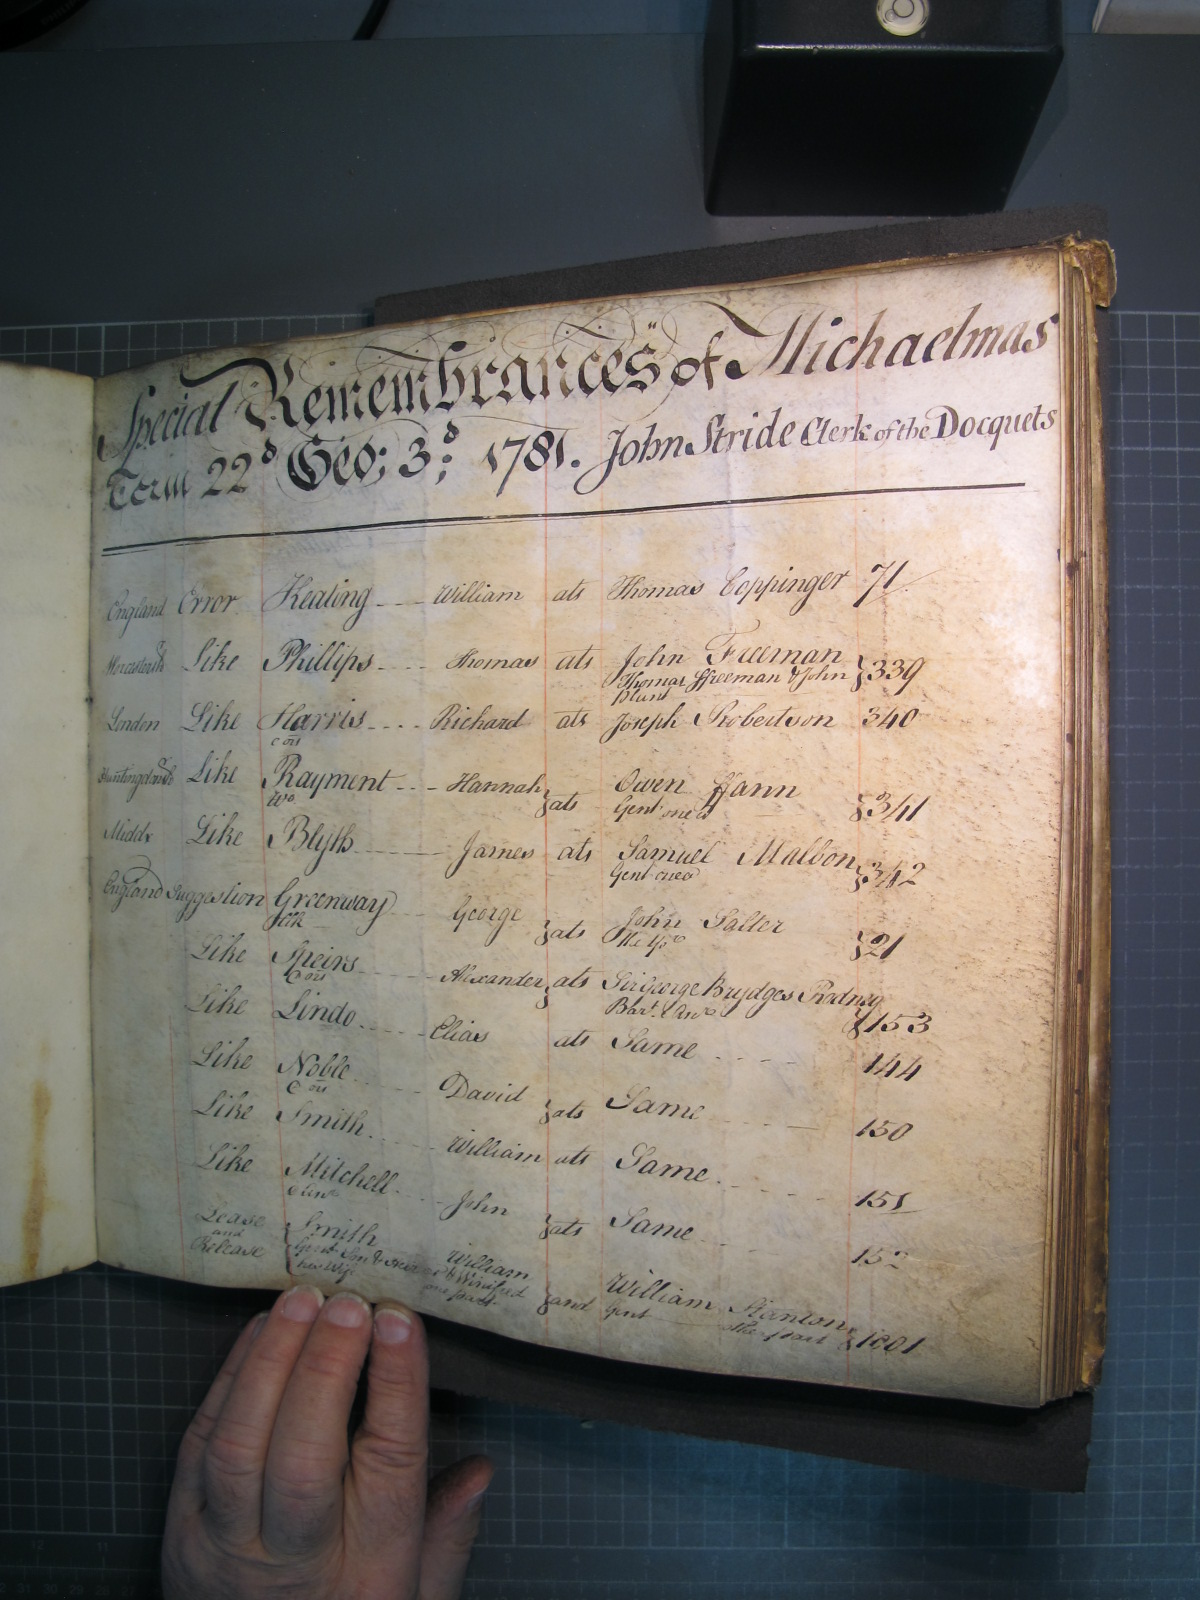 Special Remembrances of Michaelmas
Term 22d Geo; 3d; 1781. John Stride Clerk of the Docquets
England Error Keating William ats Thomas Coppinger 71
Like Phillips Thomas ats John Freeman 339
Thomas ffreeman & John
Blunt
London Like Harris Richard ats Joseph Robertson 340
Like Rayment Hannah ats Owen ffann 341
Wo Gent one &c
Middx Like Blyth James ats Samuel Malbon 342
Gent one &c
England Suggestion Greenway George ats John Salter 21
Like Speirs Alexander ats Sir George Brydges Rodney 153
Bart. & Anr
Like Lindo Elias ats Same 144
Like Noble David ats Same 150
Like Smith William ats Same 151
Like Mitchell John ats Same 152
Lease and Release Smith William and William Stanton 1001
Gent Son & Heir of Winifred Gent other part
his Wife one part